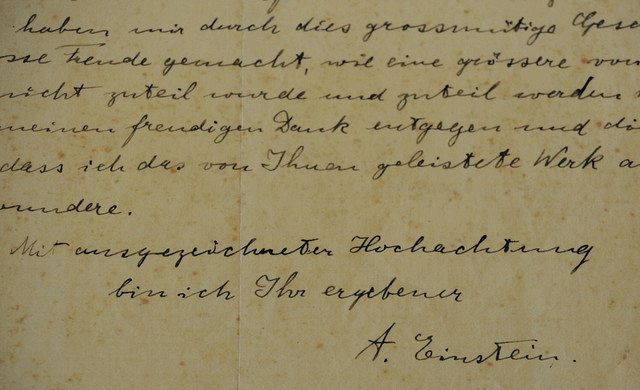 haben mir durch dies grossmütige Gesc
sse Freude gemacht, wie eine grössere von
nicht zuteil wurde und zuteil werden
meinen freudigen Dank entgegen und di
dass ich das von Ihnen geleistete Werk a
wundere.
Mit ausgezeichneter Hochachtung
bin ich Ihr ergebener
A. Einstein.